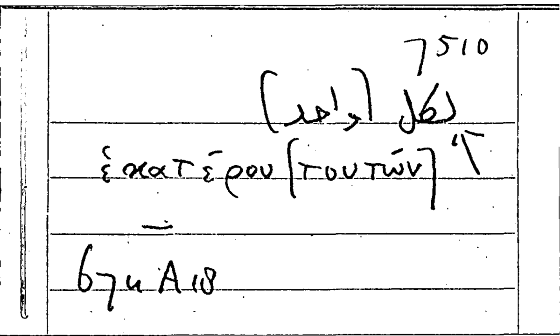 7510
لكل (واحد)
ἑκατέρου [τουτών]
67a A18